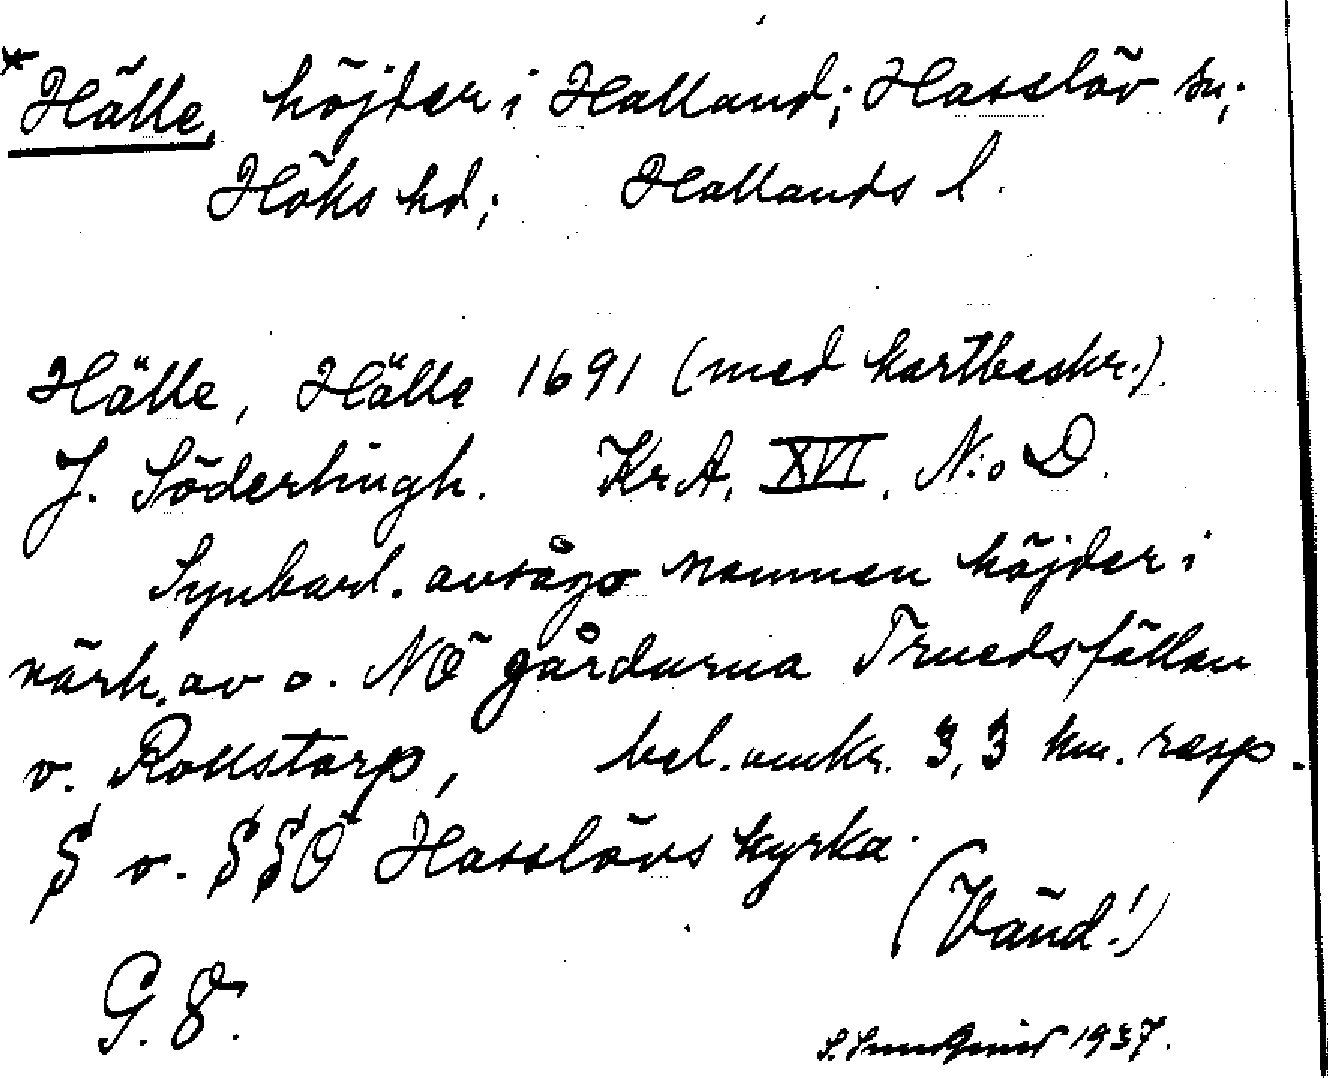 *Hälle, höjder i Halland; Hasslöv sn;
Höks hd; Hallands l.
Hälle, Hälle 1691 (med kartbeskr.).
J. Söderlingh. Kr.A. XVI. N:o D.
Synbarl. avsågs namnen höjder i
närh. av o. NÖ gårdarna Truedsfällan
o. Rollstorp, bel. omkr. 3,3 km. resp.
S o. SSÖ Hasslövs kyrka.
(Vänd!)
G. 8.
1937.